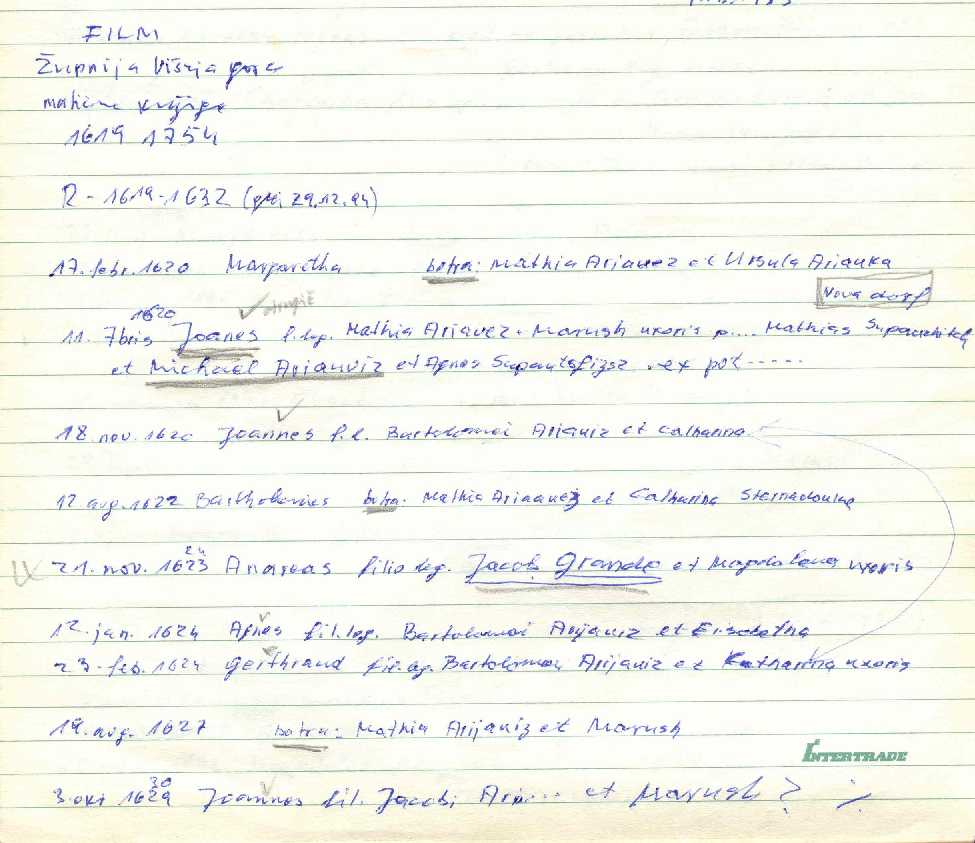 FILM
Župnija Višnja gora
matične knjige
1619 1754
R - 1619-1632 (29.12.94)
17. febr. 1620 Margaretha botra: Mathia Arianez et Ursula Arianka
Nova dorf
1620
11. 7bris Joanes f. leg. Mathia Ariavez. Marush uxoris p.... Mathias
et Michael Arianviz et Agnes .ex pot -----
18. nov. 1620 Joannes f. l. Bartolomei Arianiz et Catharina
12 aug. 1622 Bartholomeus botra. Mathia et Catharina
24
21. nov. 1623 Andreas filio leg. Jacob Grande et Magdalena uxoris
12. jan. 1624 Agnes fil. leg. Bartolomei Arijaniz et
23. feb. 1624 Gerthraud fil. leg. Bartolomei Arijaniz et Katharina uxoris
19. aug. 1627 botra: Mathia Arijaniz et Marush
INTERTRADE
30
3. okt 1629 Joannes fil. Jacobi Ari.... et Marush ? ./.